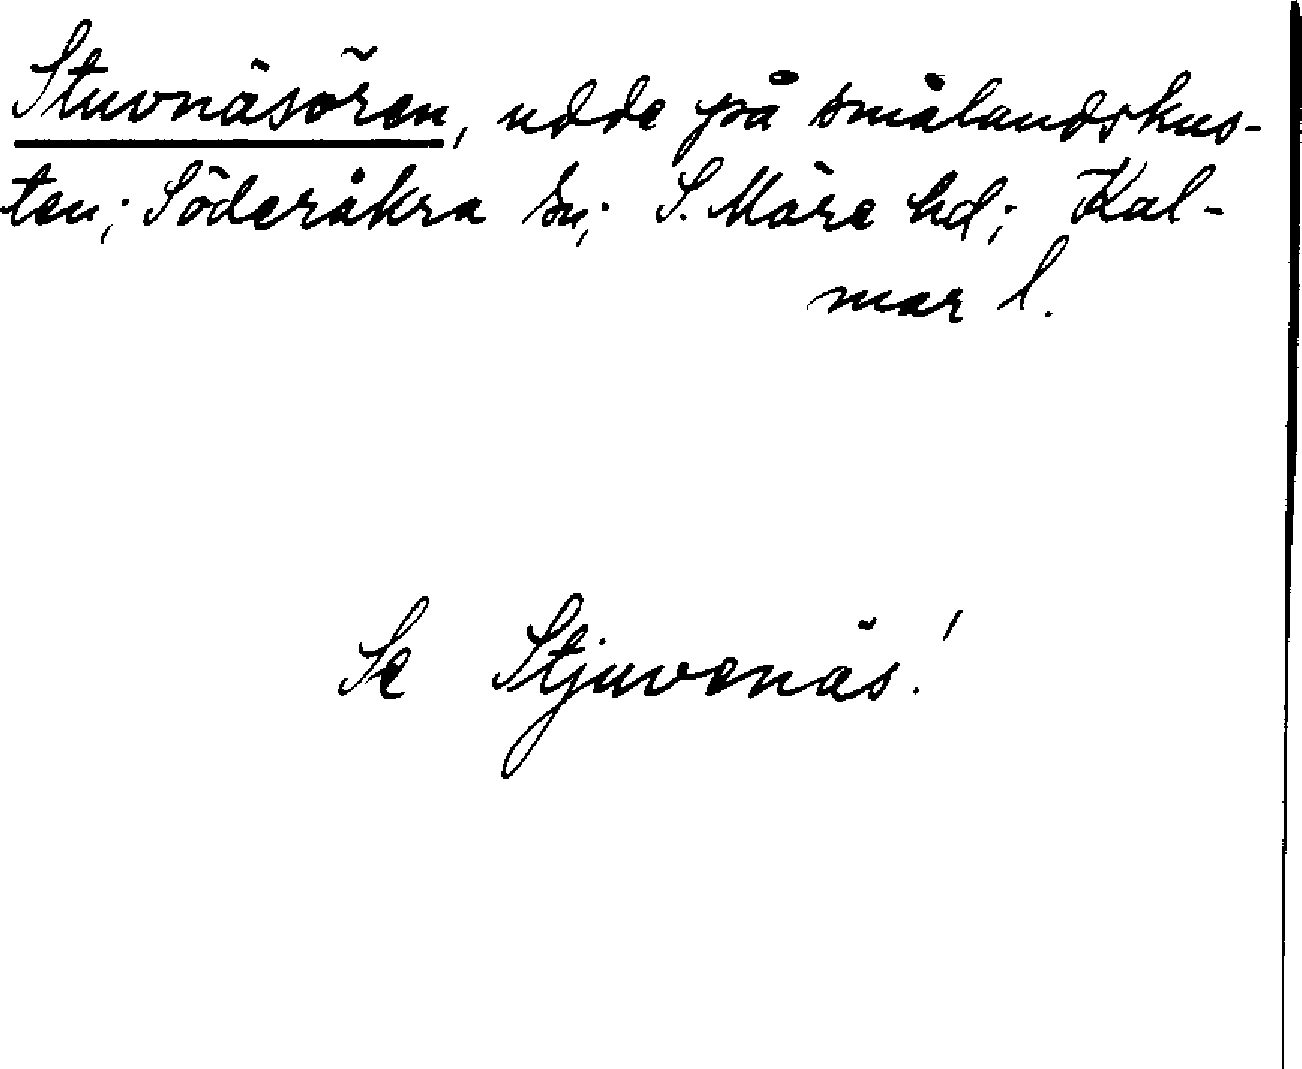 Stuvnäsören, udde på smålandskus-
ten; Söderåkra sn; S. Möre hd; Kal-
mar l.
Se Stjuvenäs!